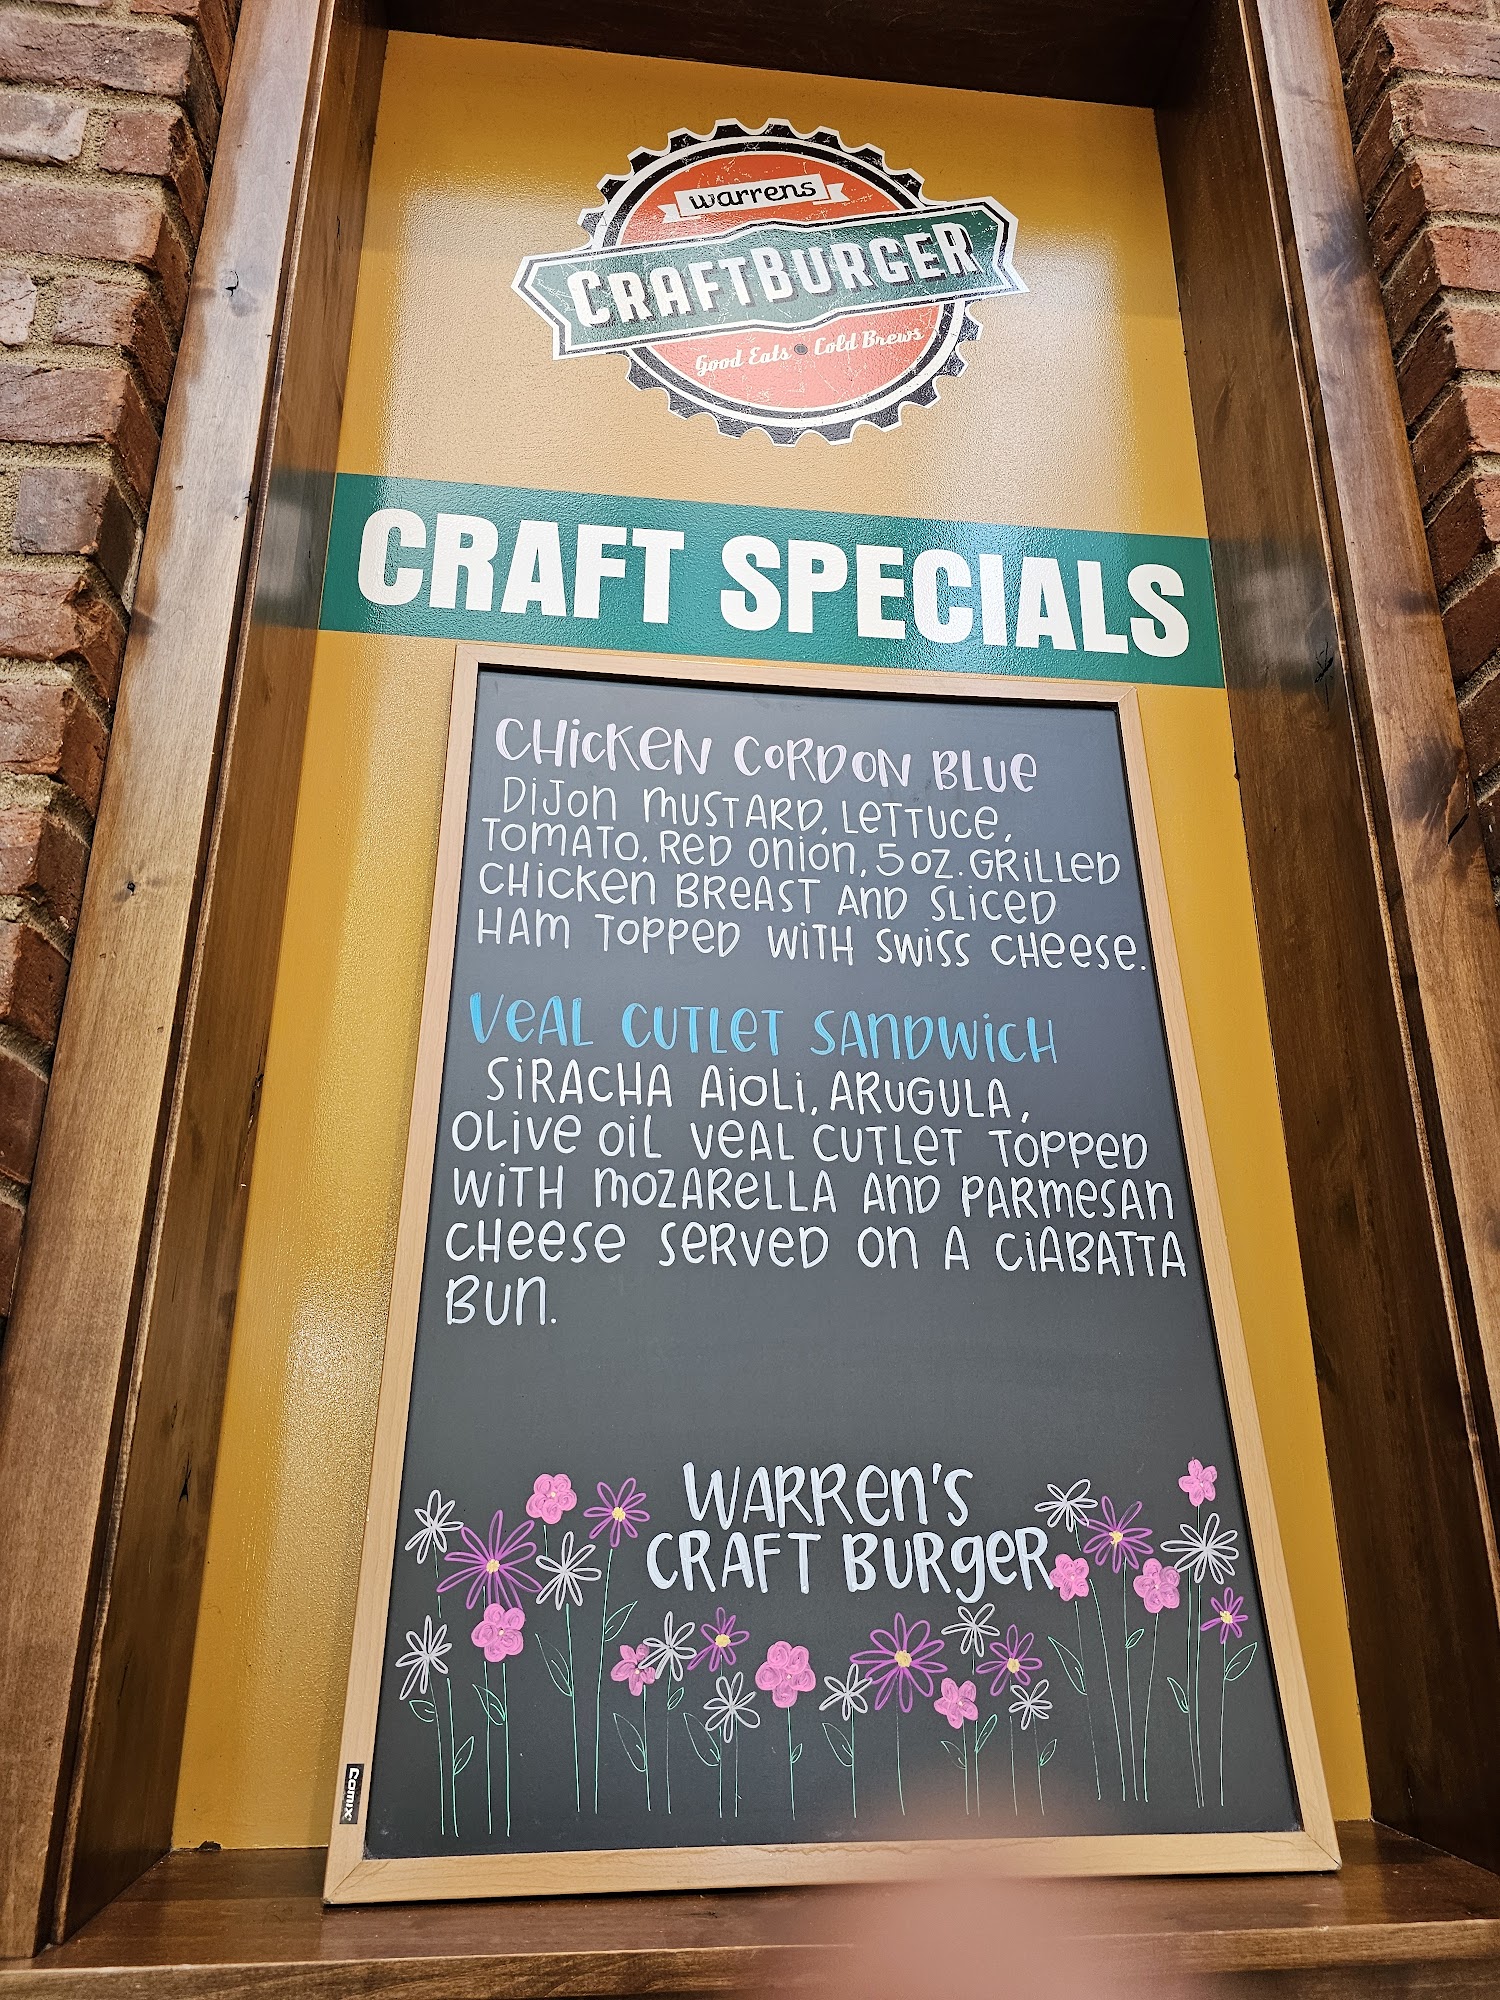 warrens
CRAFTBURGER
Good Eats • Cold Brews
CRAFT SPECIALS
CHICKEN CORDON BLUE
DIJON MUSTARD, LETTUCE,
TOMATO, RED ONION, 5 OZ. GRILLED
CHICKEN BREAST AND SLICED
HAM TOPPED WITH SWISS CHEESE.
VEAL CUTLET SANDWICH
SIRACHA AIOLI, ARUGULA,
OLIVE OIL VEAL CUTLET TOPPED
WITH MOZARELLA AND PARMESAN
CHEESE SERVED ON A CIABATTA
BUN.
WARREN'S
CRAFT BURGER
Comix